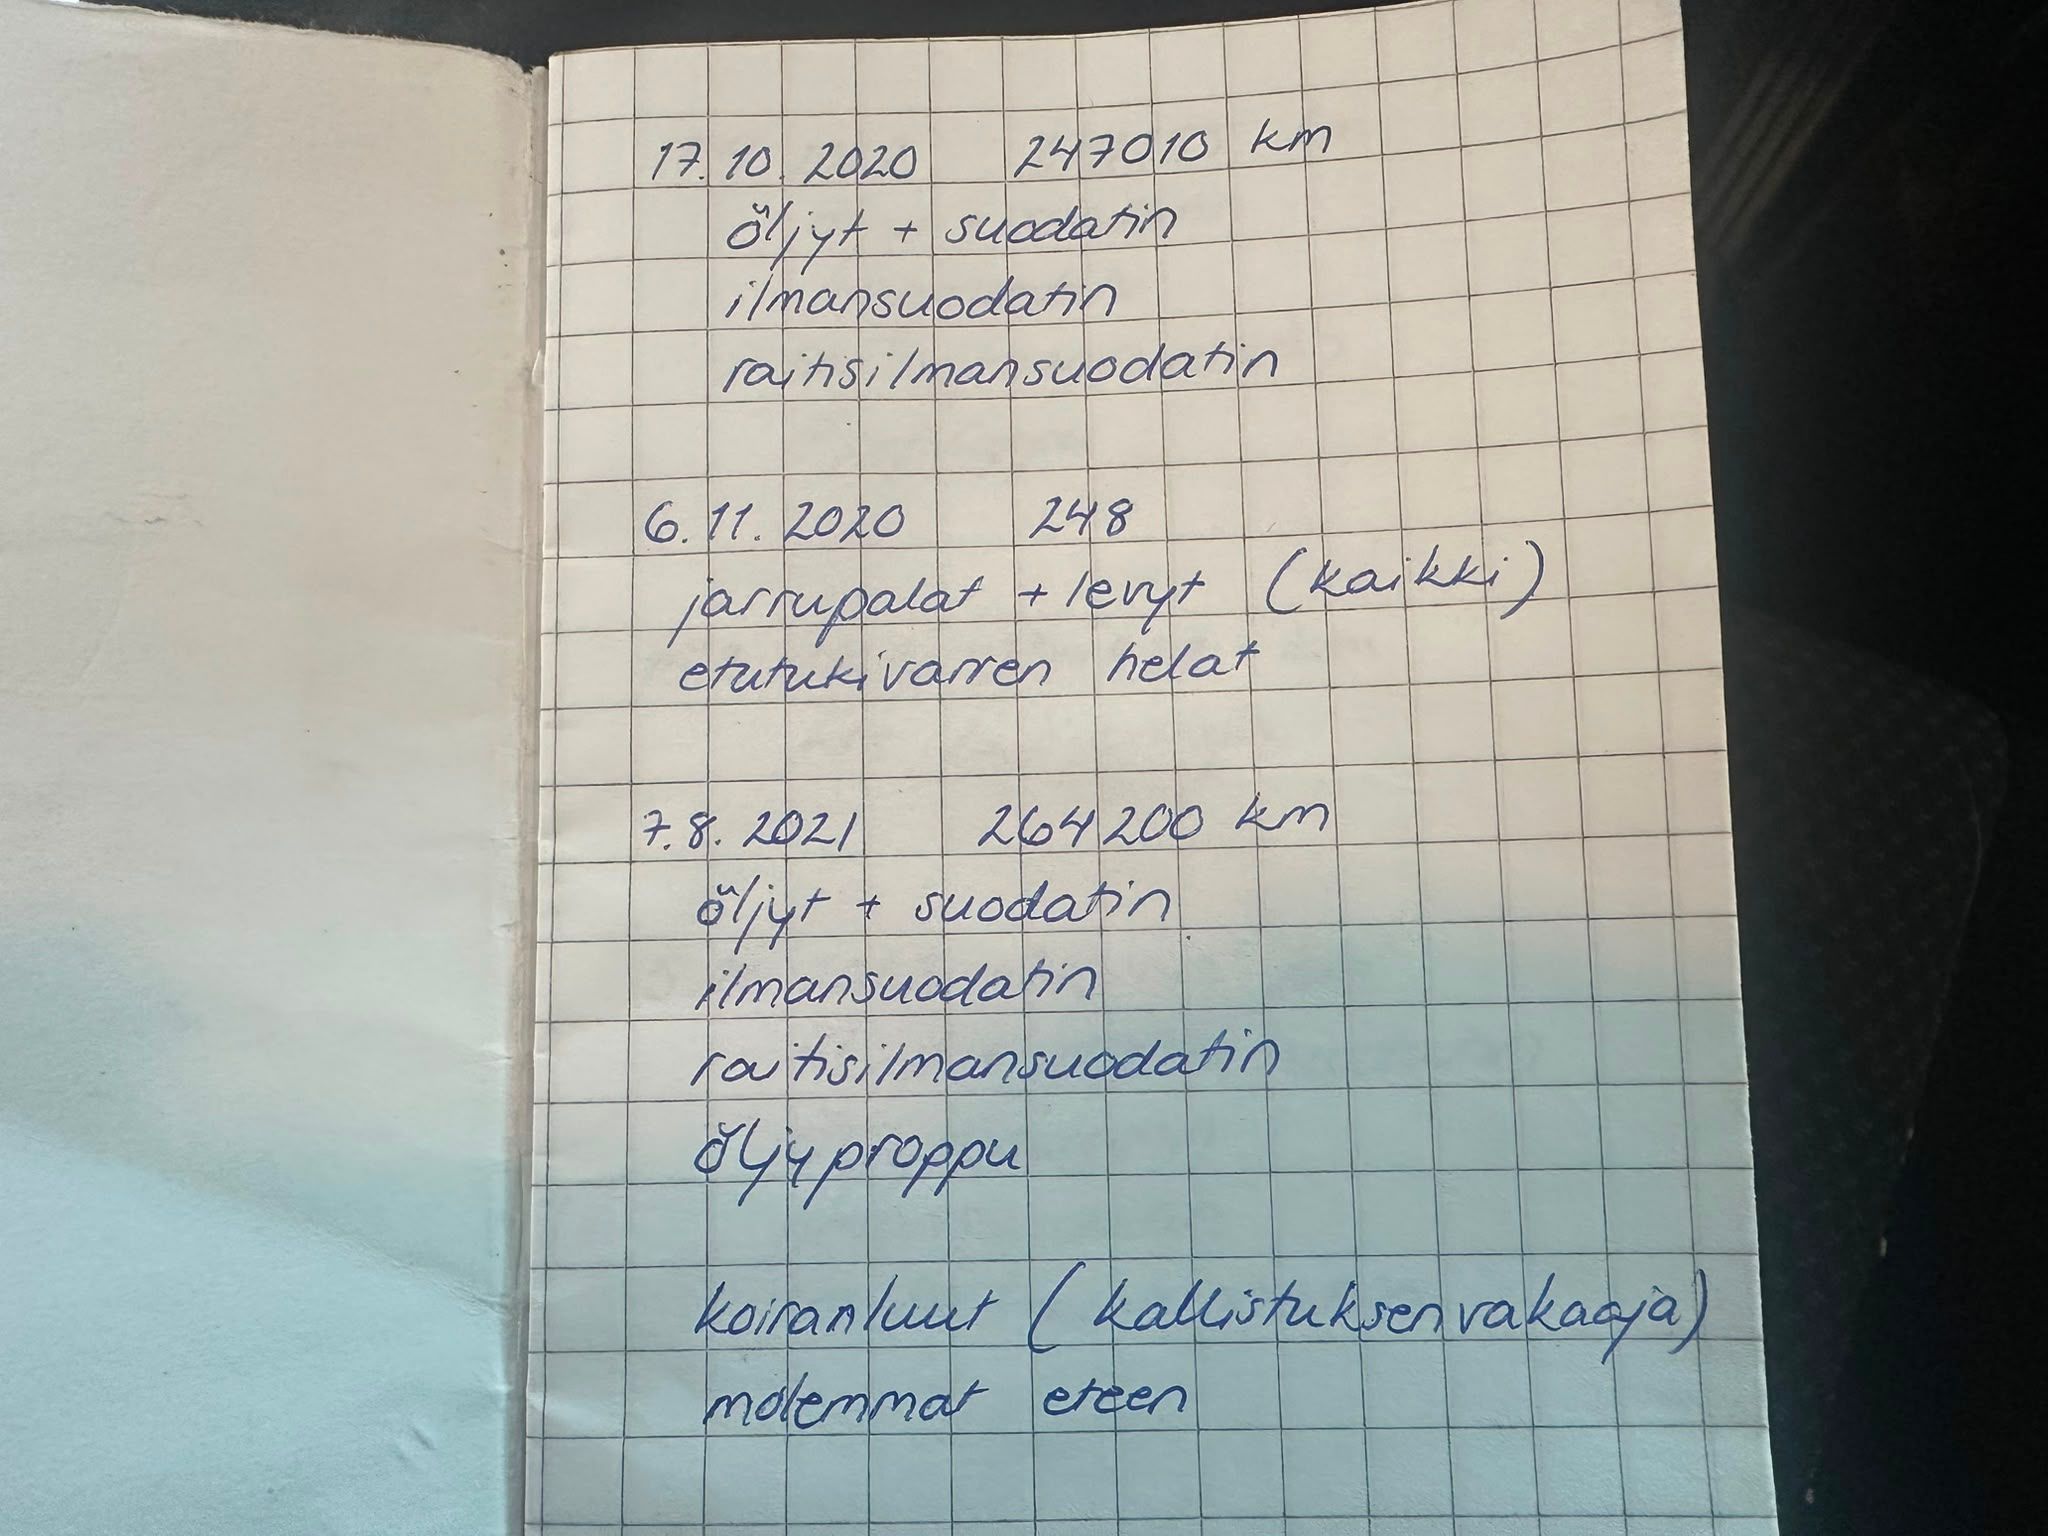 17.10.2020 247010 km
öljyt + suodatin
ilmansuodatin
raitisilmansuodatin
6.11.2020 248
jarrupalat + levyt (kaikki)
etutukivarren helat
7.8.2021 264200 km
öljyt + suodatin
ilmansuodatin
raitisilmansuodatin
öljyproppu
koiranluut (kallistuksenvakaaja)
molemmat eteen